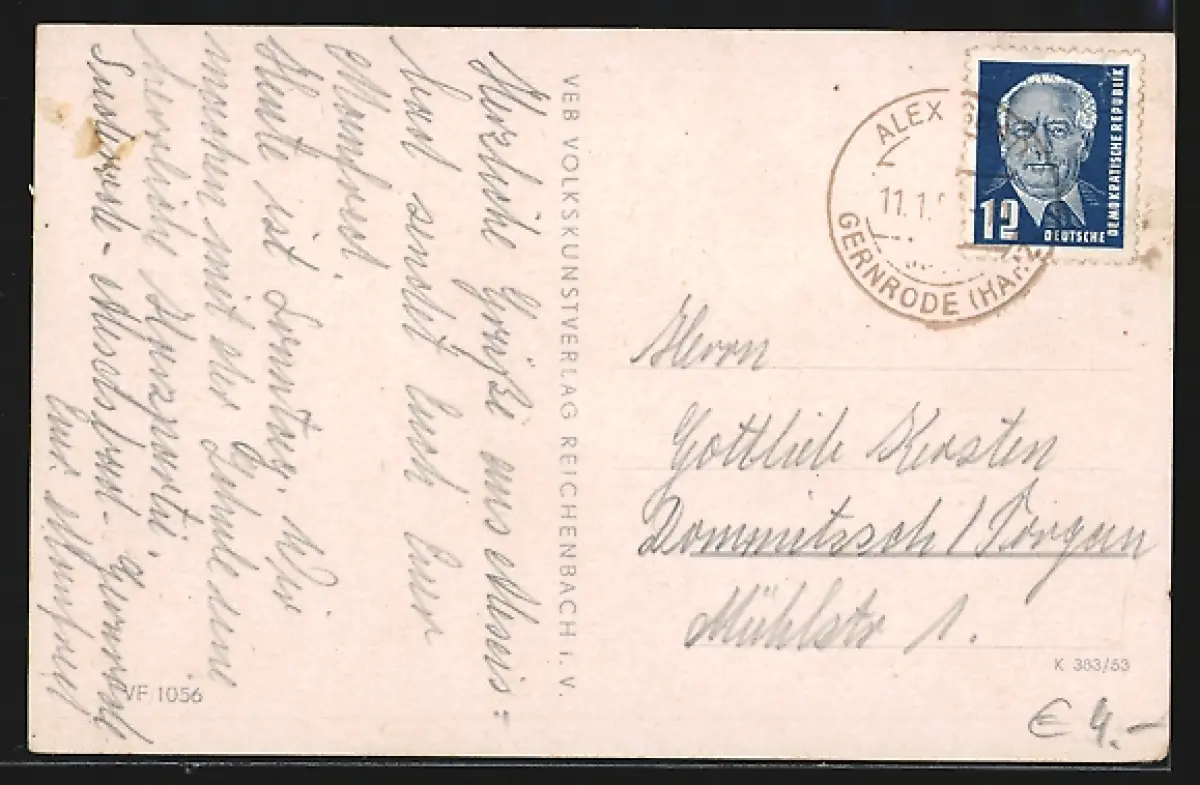 Herzliche Grüße aus Meis=
dorf sendet Euch Euer
Manfred.
Heute ist Sonntag. Wir
machen mit der Schule eine
herrliche Harzpartie.
Suderode - Mägdesprung - Gernrode
Euer Manfred
VEB VOLKSKUNSTVERLAG REICHENBACH i. V.
VF 1056
ALEX
11.1.
GERNRODE (HARZ
12
DEUTSCHE
DEMOKRATISCHE REPUBLIK
Herrn
Gottlieb Kersten
Dommitzsch / Torgau
Mühlstr 1.
K 383/53
€ 4.-